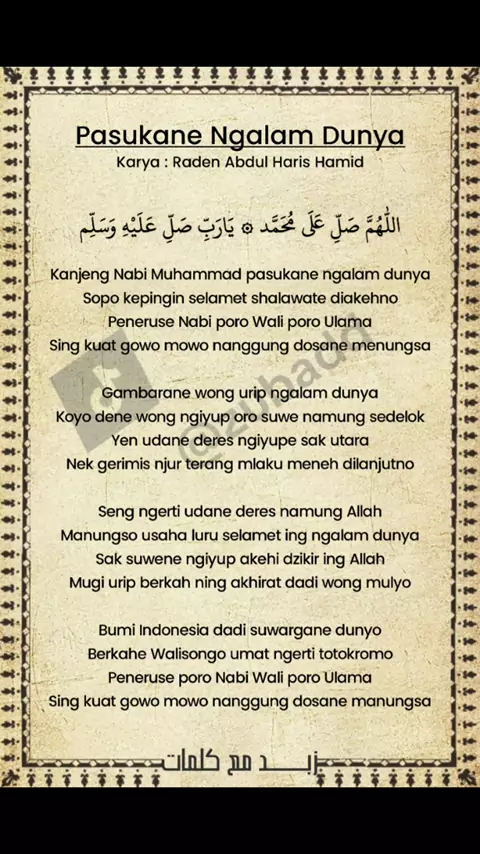 Pasukane Ngalam Dunya
Karya : Raden Abdul Haris Hamid
اللّٰهُمَّ صَلِّ عَلَى مُحَمَّد ۞ يَارَبِّ صَلِّ عَلَيْهِ وَسَلِّم
Kanjeng Nabi Muhammad pasukane ngalam dunya
Sopo kepingin selamet shalawate diakehno
Peneruse Nabi poro Wali poro Ulama
Sing kuat gowo mowo nanggung dosane menungsa
Gambarane wong urip ngalam dunya
Koyo dene wong ngiyup oro suwe namung sedelok
Yen udane deres ngiyupe sak utara
Nek gerimis njur terang mlaku meneh dilanjutno
Seng ngerti udane deres namung Allah
Manungso usaha luru selamet ing ngalam dunya
Sak suwene ngiyup akehi dzikir ing Allah
Mugi urip berkah ning akhirat dadi wong mulyo
Bumi Indonesia dadi suwargane dunyo
Berkahe Walisongo umat ngerti totokromo
Peneruse poro Nabi Wali poro Ulama
Sing kuat gowo mowo nanggung dosane manungsa
زبد مع كلمات